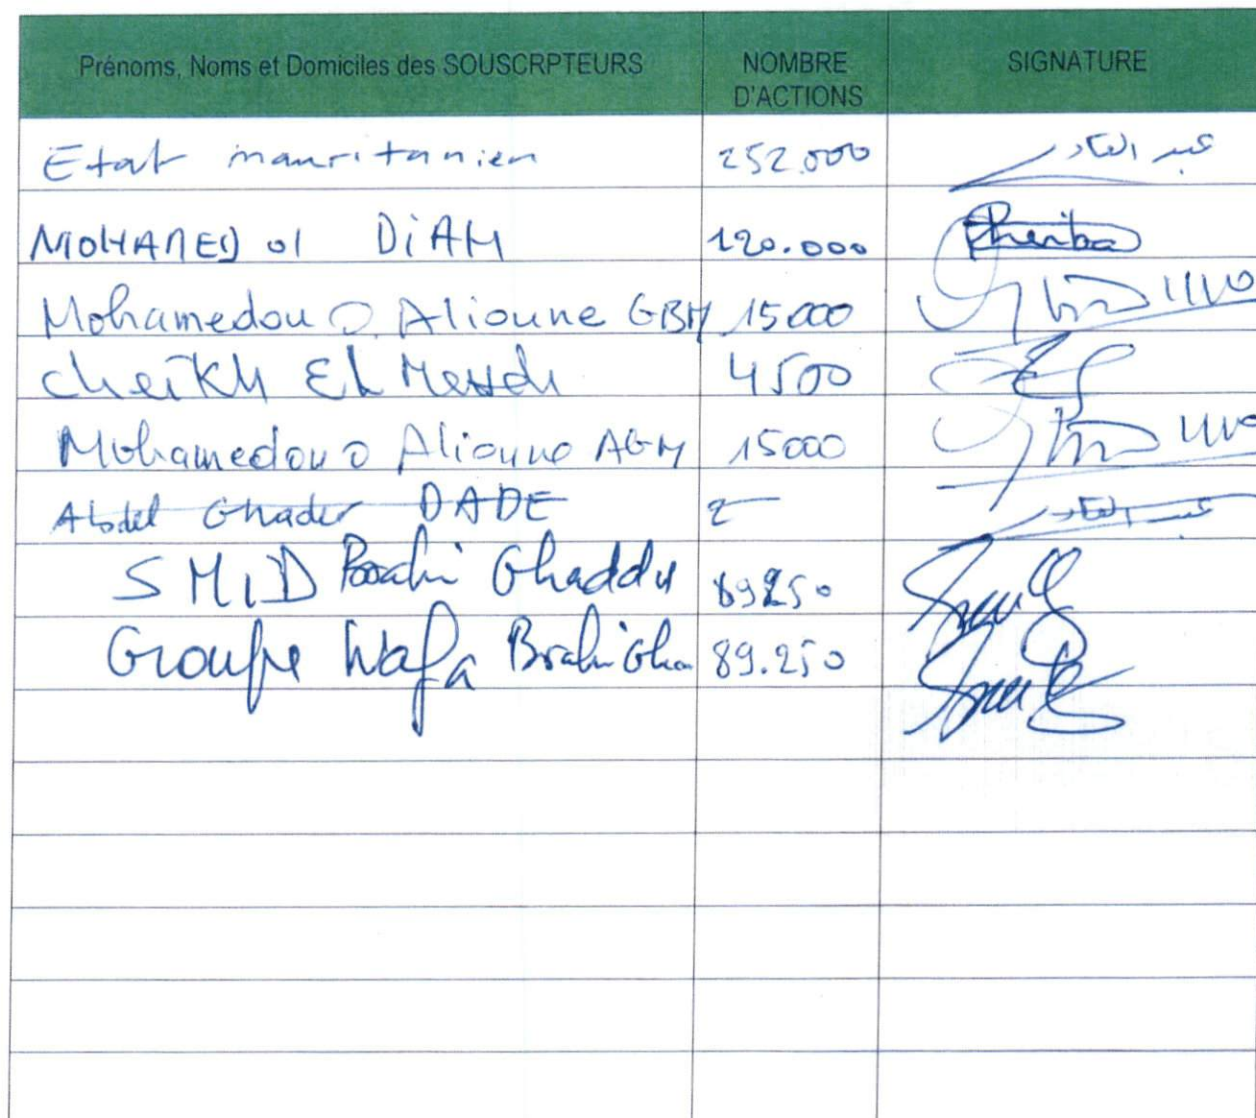 Prénoms, Noms et Domiciles des SOUSCRPTEURS NOMBRE D'ACTIONS SIGNATURE
Etat mauritanien 252.000 عبد القادر
MOHAMED ol DiAH 120.000 Cheiba
Mohamedou O Alioune GBM 15000
cheikh El 4500
Mohamedou O Alioune AGM 15000
Abdel Ghader DADE 2 عبد القادر
SMiD Brahi Ghaddu 89250
Groupe Wafa Brahi Gha 89.250